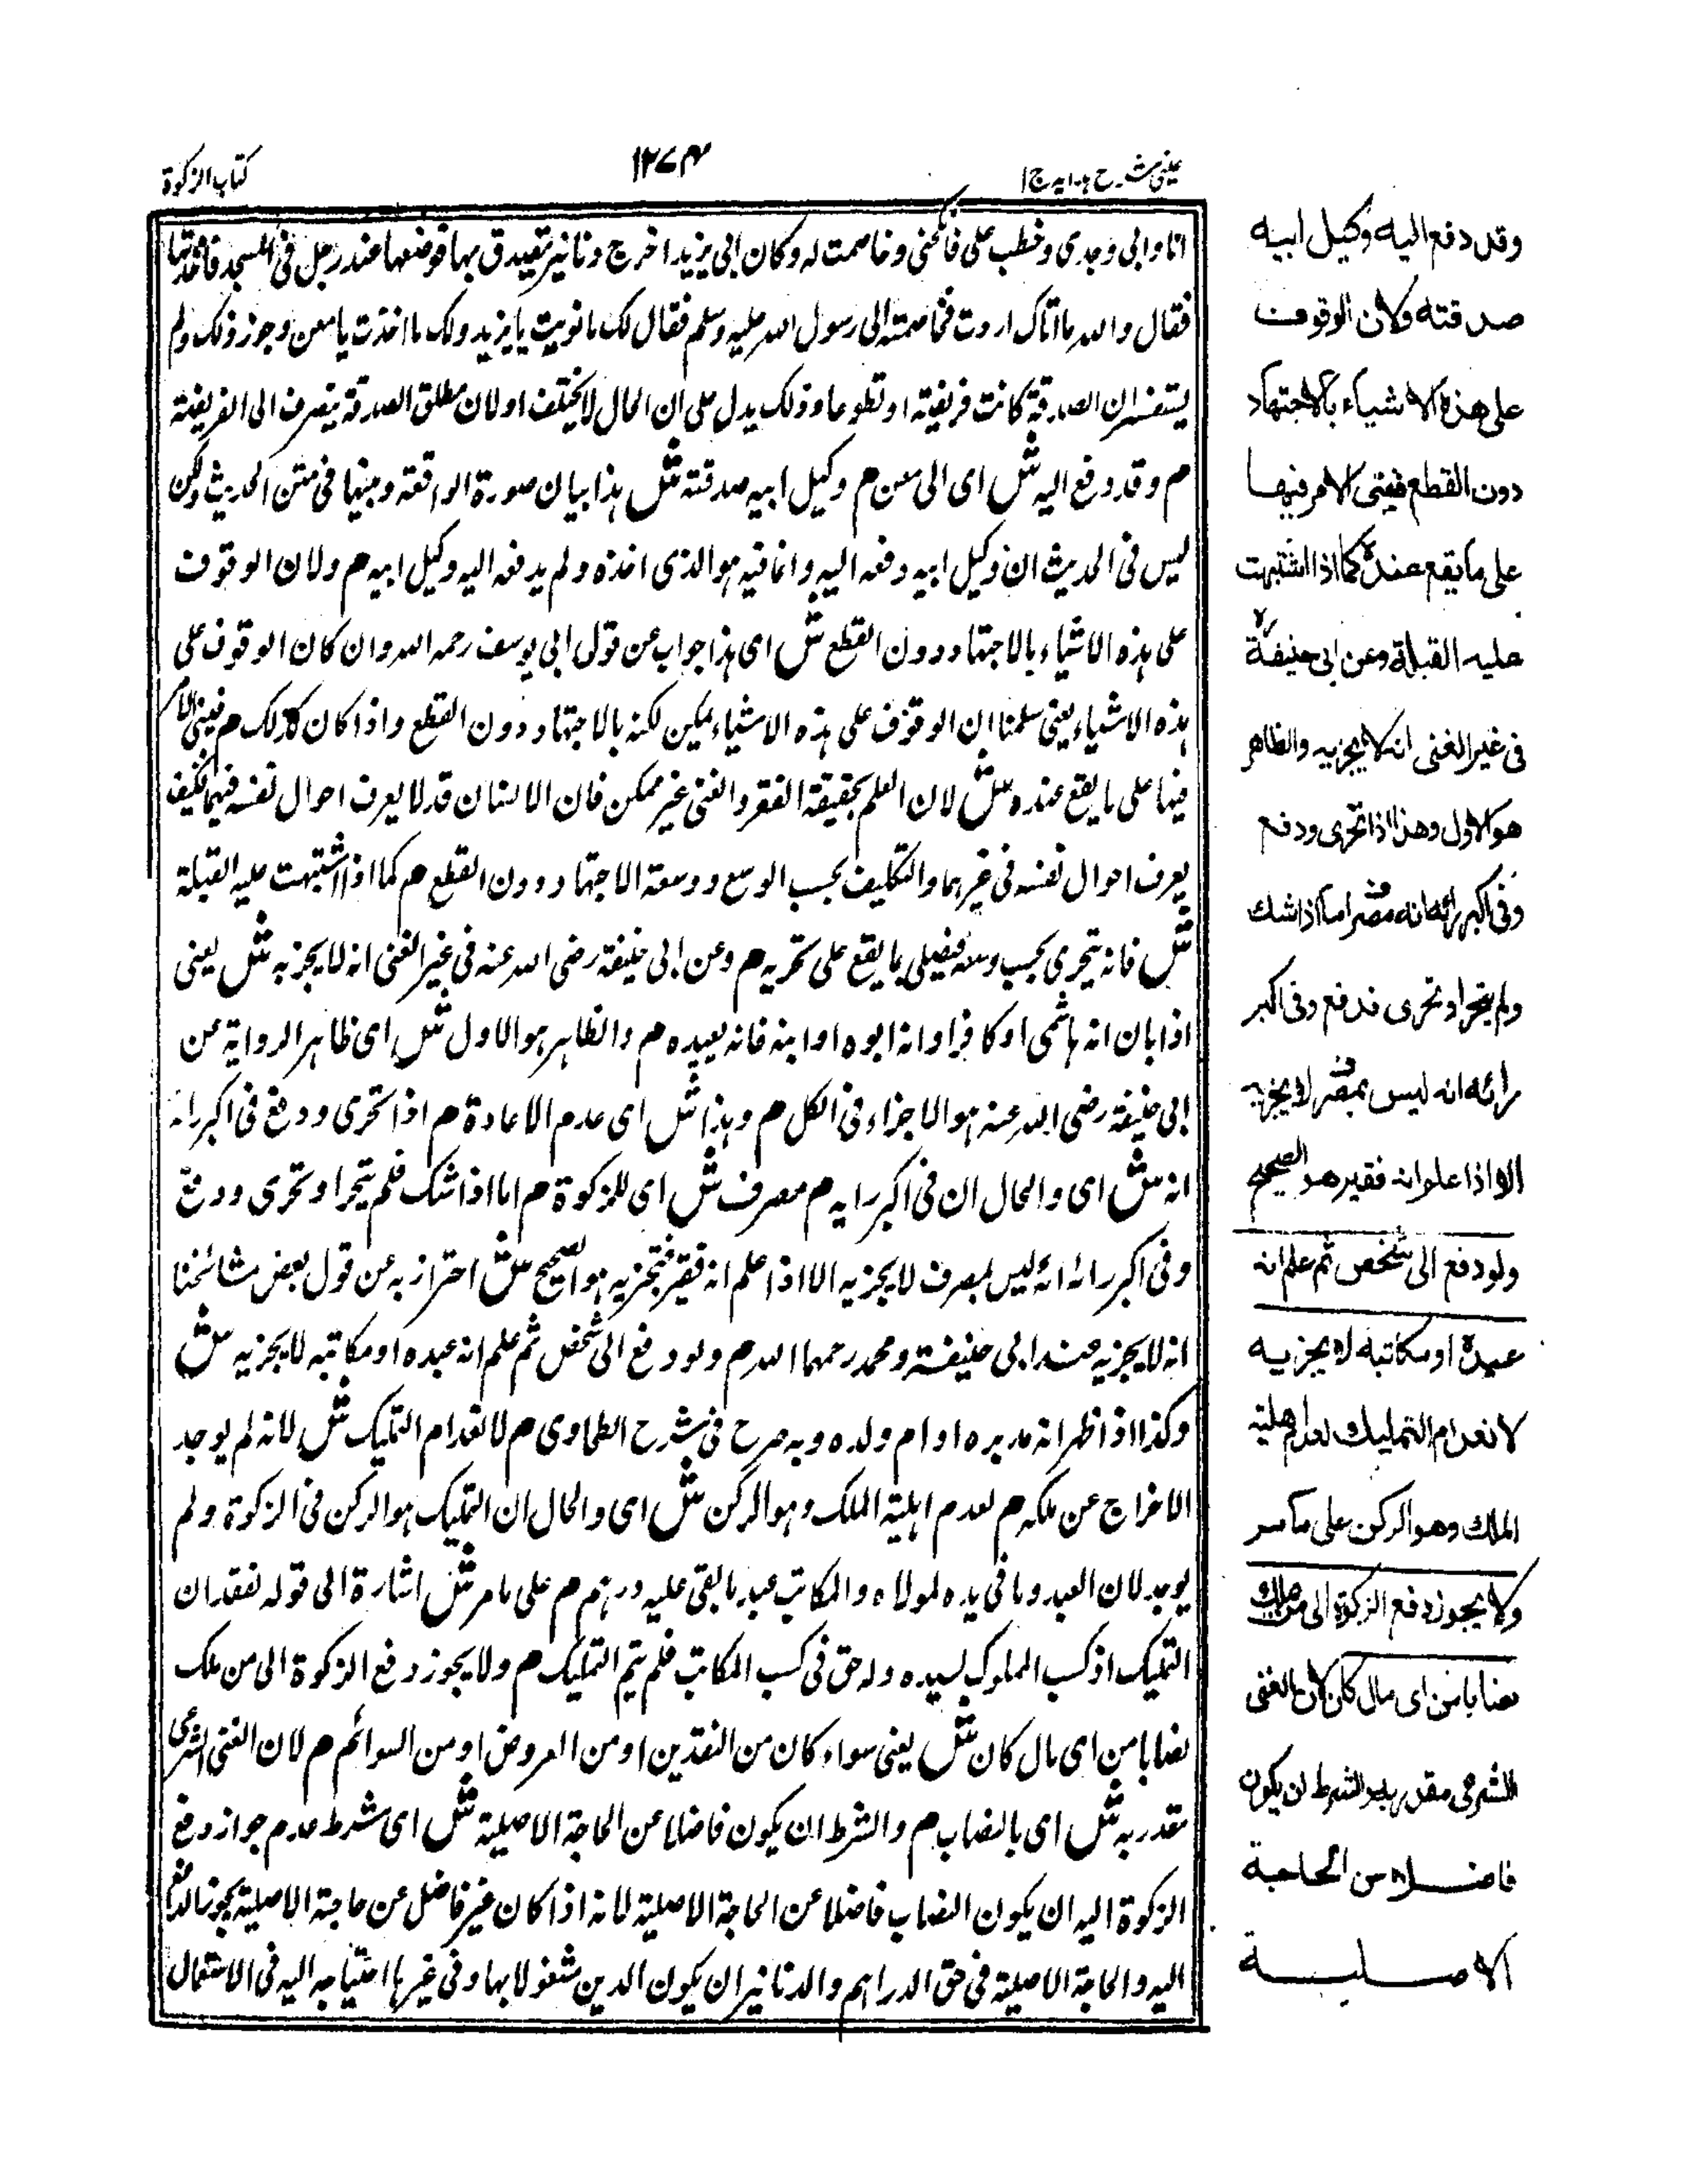 عینی شرح ہدایہ ج ا
۱۲۷۴
کتاب الزکوة
انا وابی وجدی وخطب علی فانکحنی وخاصمت له وکان ابی یزید اخرج دنانیر یتصدق بها فوضعها عند رجل فی المسجد فاخذتها
فقال والله ما ایاک اردت فخاصمته الی رسول الله صلیه وسلم فقال لک ما نویت یا یزید ولک ما اخذت یا معن وجوز ذلک ولم
یستفسر ان الصدقة کانت فریضة او تطوعا وذلک یدل علی ان الحال لا یختلف او لان مطلق الصدقة ینصرف الی الفریضة
م وقد دفع الیه ش ای الی معن م وکیل ابیه صدقته ش هذا بیان صورة الواقعة وبینها فی متن الحدیث ولکن
لیس فی الحدیث ان وکیل ابیه دفعه الیه وانما فیه هو الذی اخذه ولم یدفعه الیه وکیل ابیه م ولان الوقوف
علی هذه الاشیاء بالاجتهاد دون القطع ش ای هذا جواب عن قول ابی یوسف رحمه الله وان کان الوقوف علی
هذه الاشیاء یعنی سلمنا ان الوقوف علی هذه الاشیاء یمکن لکنه بالاجتهاد دون القطع واذا کان کذلک م فیبنی الامر
فیها علی ما یقع عنده ش لان العلم بحقیقة الفقر والغنی غیر ممکن فان الانسان قد لا یعرف احوال نفسه فیهما فکیف
یعرف احوال نفسه فی غیرهما والتکلیف بحسب الوسع ووسعة الاجتهاد دون القطع م کما اذا اشتبهت علیه القبلة
ش فانه یتحری بحسب وسعه فیصلی بما یقع علی تحریه م وعن ابی حنیفة رضی الله عنه فی غیر الغنی انه لا یجزیه ش یعنی
اذا بان انه هاشمی او کافر او انه ابوه او ابنه فانه یعیده م والظاهر هو الاول ش ای ظاهر الروایة عن
ابی حنیفة رضی الله عنه هو الاجزاء فی الکل م وهذا ش ای عدم الاعادة م اذا تحری ودفع فی اکبر رائه
انه ش ای والحال ان فی اکبر رایه م مصرف ش ای للزکوة م اما اذا شک فلم یتحر او تحری ودفع
وفی اکبر رائه انه لیس بمصرف لا یجزیه الا اذا علم انه فقیر فتجزیه هو الصحیح ش احترز به عن قول بعض مشائخنا
انه لا یجزیه عند ابی حنیفة ومحمد رحمهما الله م ولو دفع الی شخص ثم علم انه عبده او مکاتبه لا یجزیه ش
وکذا اذا ظهر انه مدبره او ام ولده وبه صرح فی شرح الطحاوی م لانعدام التملیک ش لانه لم یوجد
الاخراج عن ملکه م لعدم اهلیة الملک وهو الرکن ش ای والحال ان التملیک هو الرکن فی الزکوة ولم
یوجد لان العبد وما فی یده لمولاه والمکاتب عبد ما بقی علیه درهم م علی ما مر ش اشارة الی قوله لفقدان
التملیک اذ کسب المملوک لسیده وله حق فی کسب المکاتب فلم یتم التملیک م ولا یجوز دفع الزکوة الی من ملک
نصابا من ای مال کان ش یعنی سواء کان من النقدین او من العروض او من السوائم م لان الغنی الشرعی
مقدر به ش ای بالنصاب م والشرط ان یکون فاضلا عن الحاجة الاصلیة ش ای شرط عدم جواز دفع
الزکوة الیه ان یکون النصاب فاضلا عن الحاجة الاصلیة لانه اذا کان غیر فاضل عن حاجة الاصلیة یجوز الدفع
الیه والحاجة الاصلیة فی حق الدراهم والدنانیر ان یکون الدین مشغولا بها وفی غیرها احتیاجه الیه فی الاستعمال
وقد دفع الیه وکیل ابیه
صدقته ولان الوقوف
علی هذه الاشیاء بالاجتهاد
دون القطع فیبنی الامر فیها
علی ما یقع عنده کما اذا اشتبهت
علیه القبلة وعن ابی حنیفة رح
فی غیر الغنی انه لا یجزیه والظاهر
هو الاول وهذا اذا تحری ودفع
وفی اکبر رائه انه مصرف اما اذا شک
ولم یتحر او تحری فدفع وفی اکبر
رائه انه لیس بمصرف لا یجزیه
الا اذا علم انه فقیر هو الصحیح
ولو دفع الی شخص ثم علم انه
عبده او مکاتبه لا یجزیه
لانعدام التملیک لعدم اهلیة
الملک وهو الرکن علی ما مر
ولا یجوز دفع الزکوة الی من ملک
نصابا من ای مال کان لان الغنی
الشرعی مقدر به والشرط ان یکون
فاضلا عن الحاجة
الاصلیة